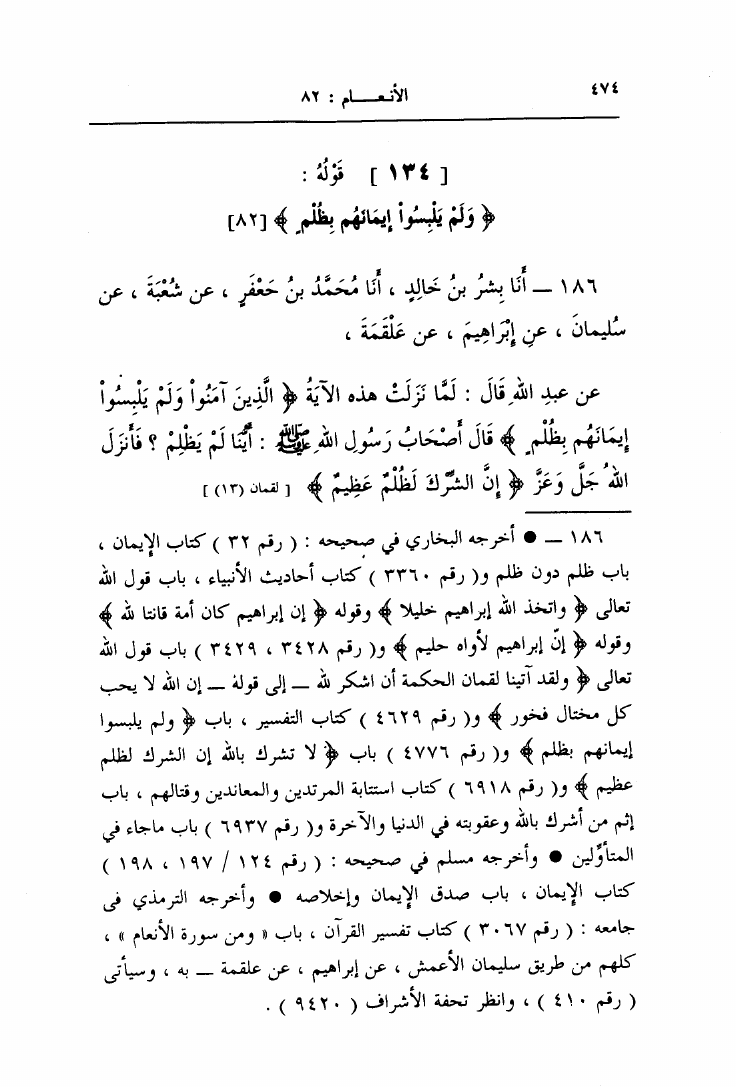 ٤٧٤
الأنعـــام : ٨٢
[ ١٣٤ ] قَوْلُهُ :
﴿ وَلَمْ يَلْبِسُواْ إِيمَانَهُم بِظُلْمٍ ﴾ [٨٢]
١٨٦ — أَنَا بِشرُ بنُ خَالِدٍ ، أَنَا مُحَمَّدُ بنُ جَعْفَرٍ ، عن شُعْبَةَ ، عن
سُليمانَ ، عنِ إِبْرَاهِيمَ ، عن عَلْقَمَةَ ،
عن عبدِ اللهِ قَالَ : لَمَّا نَزَلَتْ هذه الآيَةُ ﴿ الَّذِينَ آمَنُواْ وَلَمْ يَلْبِسُواْ
إِيمَانَهُم بِظُلْمٍ ﴾ قَالَ أَصْحَابُ رَسُولِ اللهِ ﷺ : أَيُّنَا لَمْ يَظْلِمْ ؟ فَأَنزَلَ
اللهُ جَلَّ وَعَزَّ ﴿ إِنَّ الشِّرْكَ لَظُلْمٌ عَظِيمٌ ﴾ [ لقمان (١٣) ]
١٨٦ — ● أخرجه البخاري في صحيحه : ( رقم ٣٢ ) كتاب الإيمان ،
باب ظلم دون ظلم و( رقم ٣٣٦٠ ) كتاب أحاديث الأنبياء ، باب قول الله
تعالى ﴿ واتخذ الله إبراهيم خليلا ﴾ وقوله ﴿ إن إبراهيم كان أمة قانتا لله ﴾
وقوله ﴿ إنّ إبراهيم لأواه حليم ﴾ و( رقم ٣٤٢٨ ، ٣٤٢٩ ) باب قول الله
تعالى ﴿ ولقد آتينا لقمان الحكمة أن اشكر لله — إلى قوله — إن الله لا يحب
كل مختال فخور ﴾ و( رقم ٤٦٢٩ ) كتاب التفسير ، باب ﴿ ولم يلبسوا
إيمانهم بظلم ﴾ و( رقم ٤٧٧٦ ) باب ﴿ لا تشرك بالله إن الشرك لظلم
عظيم ﴾ و( رقم ٦٩١٨ ) كتاب استتابة المرتدين والمعاندين وقتالهم ، باب
إثم من أشرك بالله وعقوبته في الدنيا والآخرة و( رقم ٦٩٣٧ ) باب ماجاء في
المتأوِّلين ● وأخرجه مسلم في صحيحه : ( رقم ١٢٤ / ١٩٧ ، ١٩٨ )
كتاب الإيمان ، باب صدق الإيمان وإخلاصه ● وأخرجه الترمذي فى
جامعه : ( رقم ٣٠٦٧ ) كتاب تفسير القرآن ، باب « ومن سورة الأنعام » ،
كلهم من طريق سليمان الأعمش ، عن إبراهيم ، عن علقمة — به ، وسيأتى
( رقم ٤١٠ ) ، وانظر تحفة الأشراف ( ٩٤٢٠ ) .